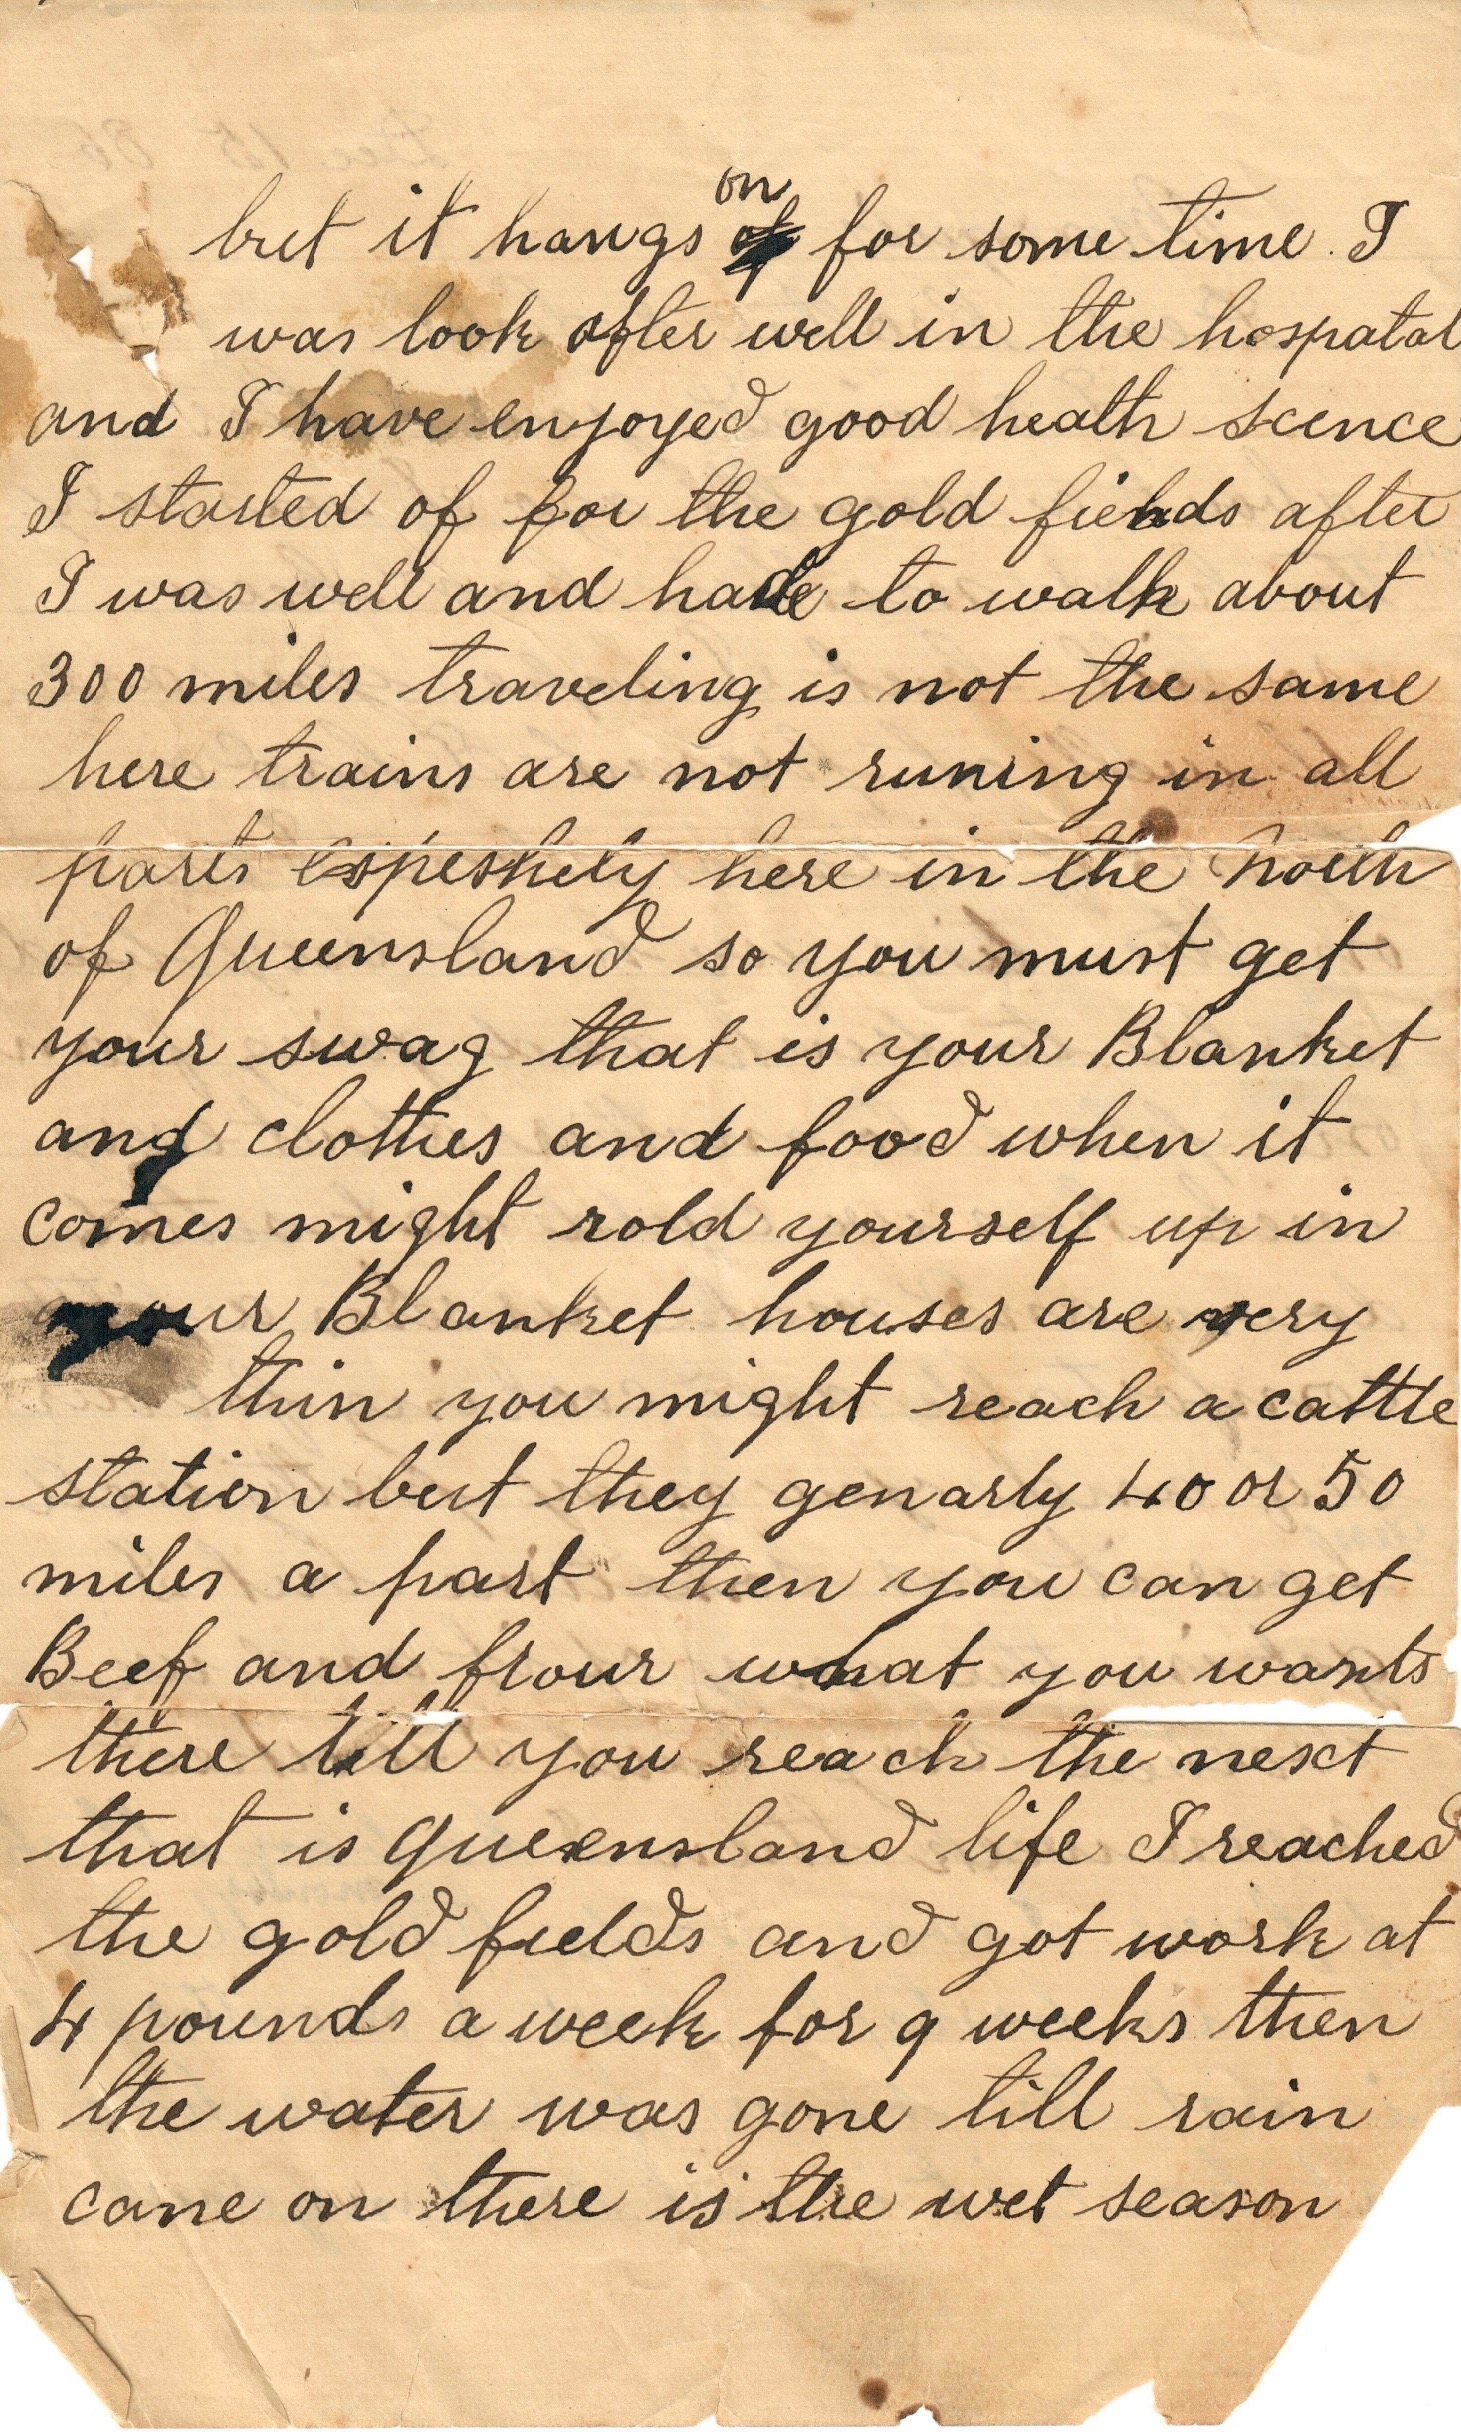 but it hangs on for some time. I
was look after well in the hospatal
and I have enjoyed good health scence
I started of for the gold fields after
I was well and hade to walk about
300 miles traveling is not the same
here trains are not runing in all
parts espeshely here in the North
of Queensland so you must get
your swag that is your Blanket
and clothes and food when it
comes might rold yourself up in
your Blanket houses are very
thin you might reach a cattle
station but they genarly 40 or 50
miles a part then you can get
Beef and flour what you wants
there till you reach the next
that is queensland life I reached
the gold fields and got work at
4 pounds a week for 9 weeks then
the water was gone till rain
came on there is the wet season